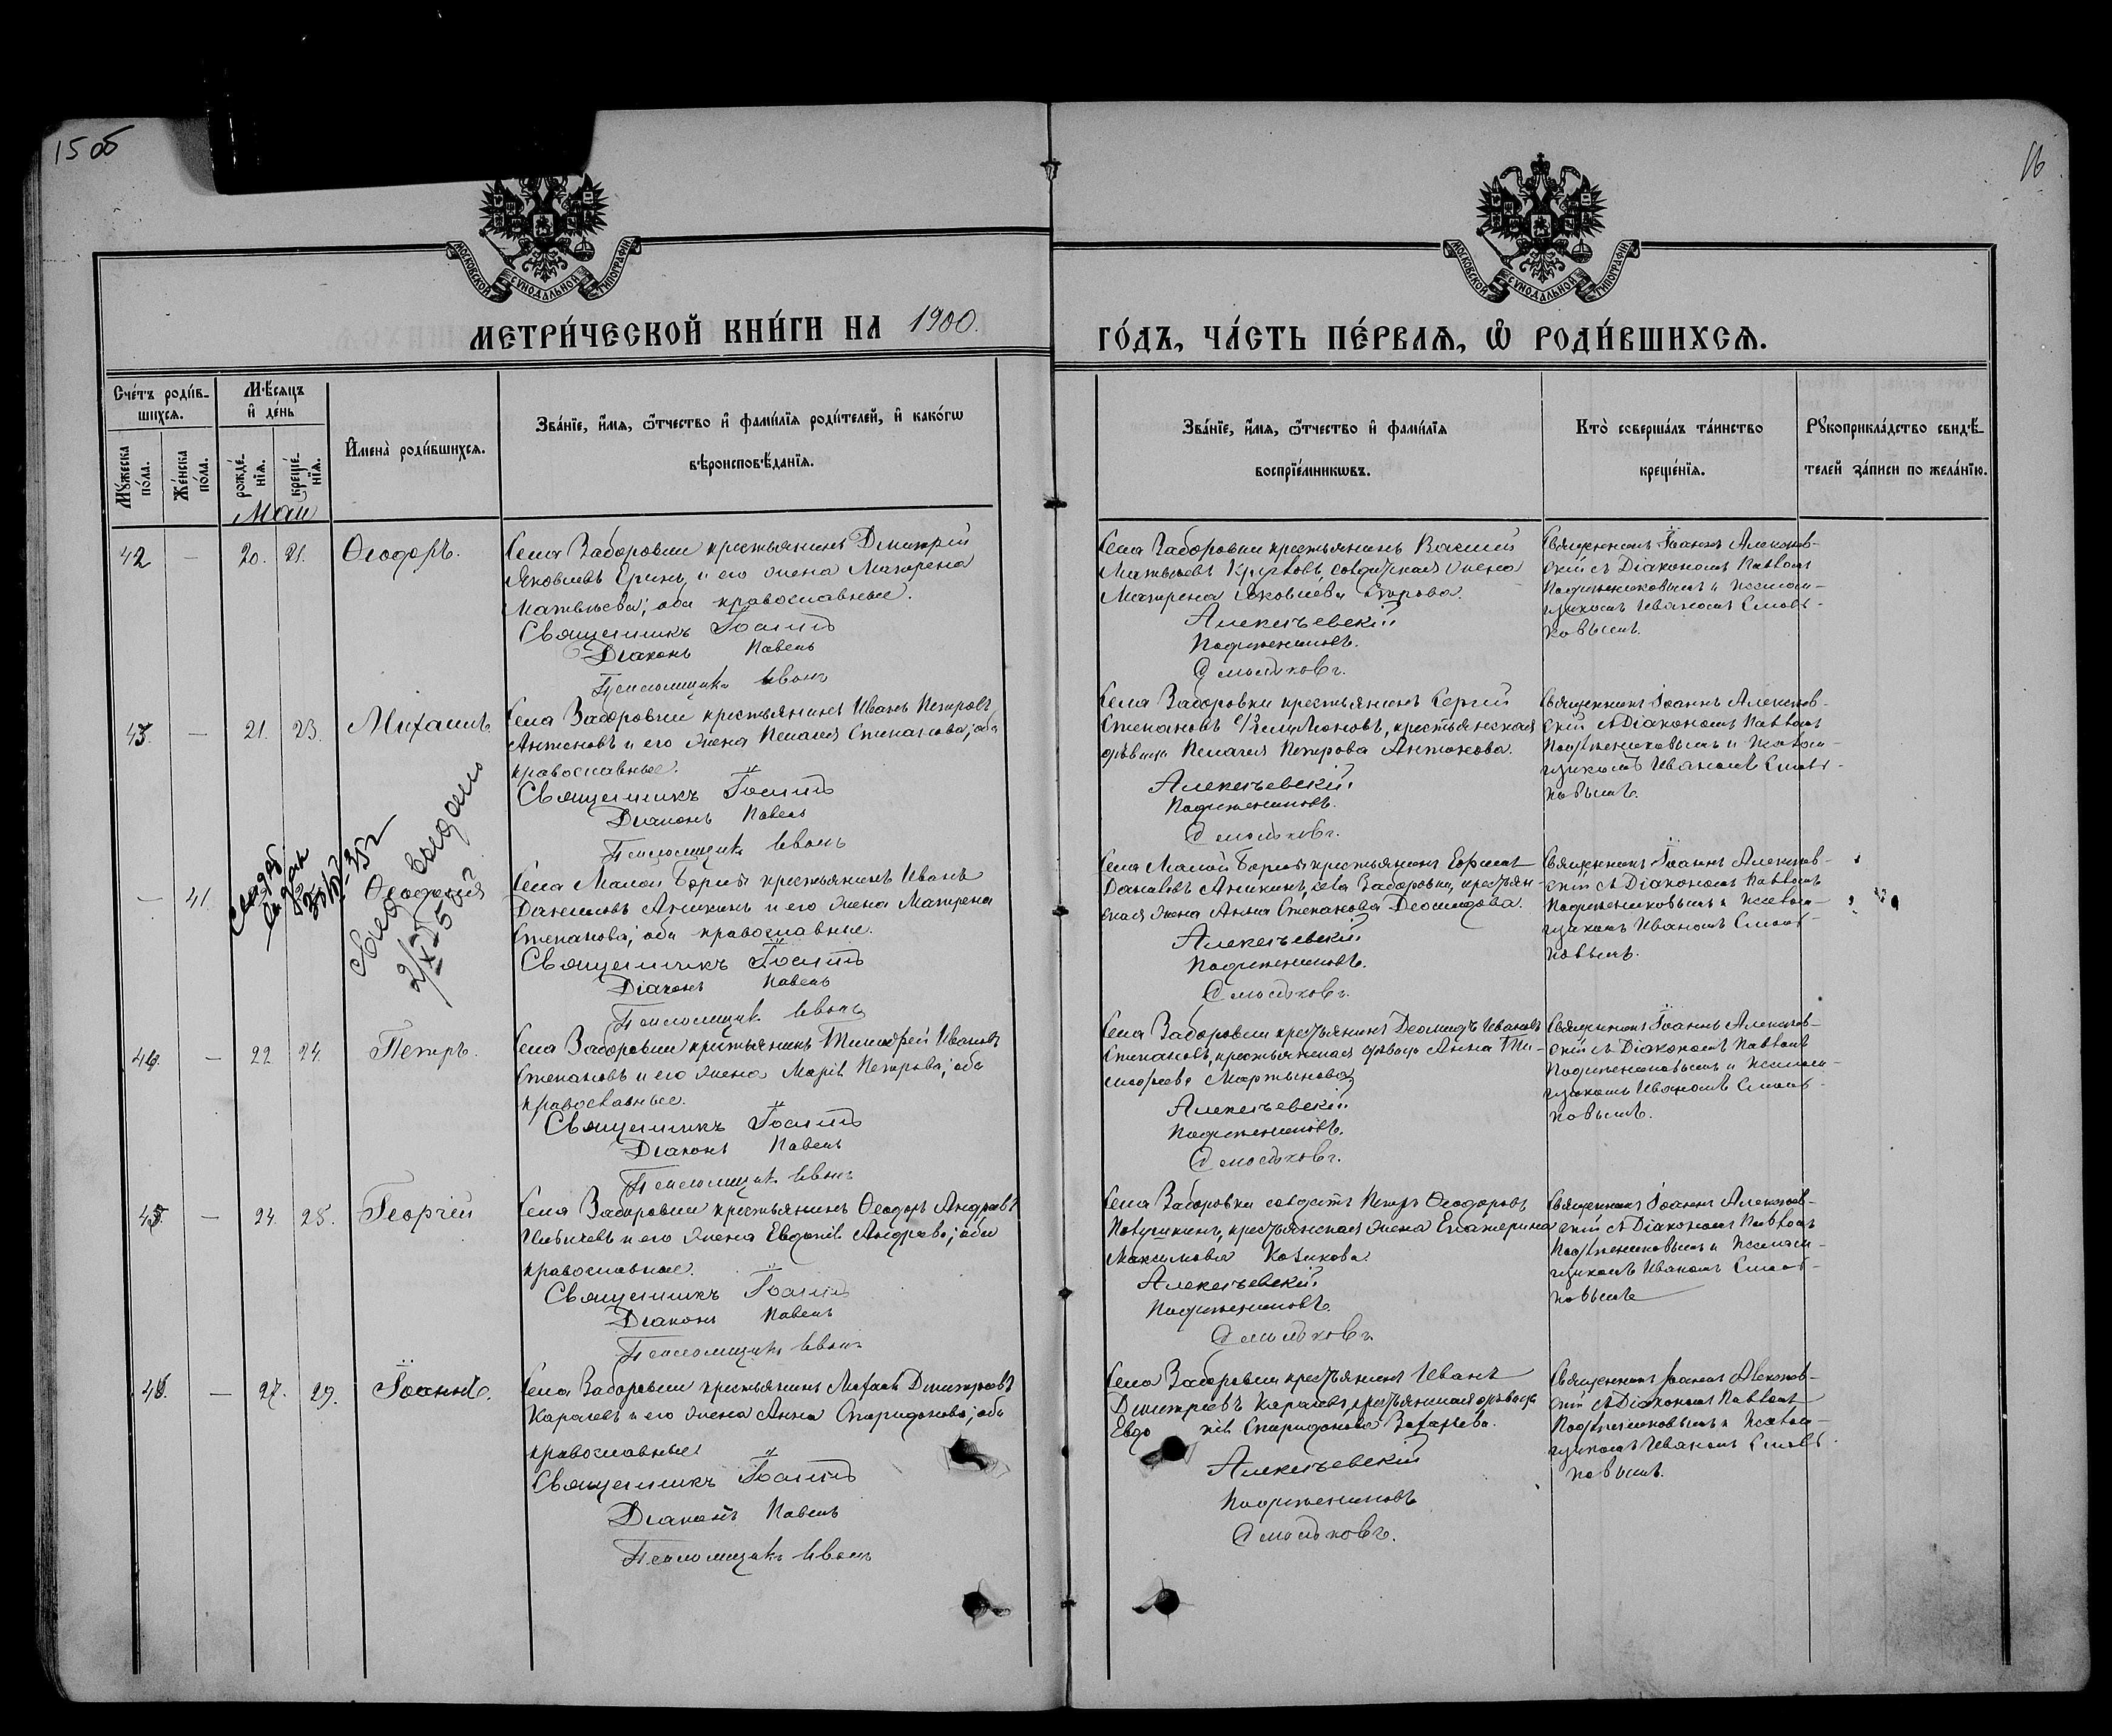 15 об
16
МОСКОВСКОЙ СѴНОДАЛЬНОЙ ТИПОГРАФІИ
МОСКОВСКОЙ СѴНОДАЛЬНОЙ ТИПОГРАФІИ
МЕТРИ́ЧЕСКОЙ КНИ́ГИ НА 1900.
ГО́ДЪ, ЧА́СТЬ ПЕ́РВАѦ, Ѡ РОДИ́ВШИХСѦ.
Сче́тъ роди́в-
шихсѧ.
Мꙋ́жеска по́ла.
Же́нска по́ла.
Мѣ́сѧцъ
и҆ де́нь
рожде́-
нїѧ.
креще́-
нїѧ.
Май
И҆мена̀ роди́вшихсѧ.
Зва́нїе, и҆́мѧ, ѻ҆́тчество и҆ фами́лїѧ роди́телей, и҆ како́гѡ
вѣроисповѣ́данїѧ.
Зва́нїе, и҆́мѧ, ѻ҆́тчество и҆ фами́лїѧ
воспрїе́мникѡвъ.
Кто̀ соверша́лъ та́инство
креще́нїѧ.
Рꙋкоприкла́дство свидѣ́-
телей за́писи по жела́нїю.
42 — 20. 21. Ѳеодоръ.
Села Заборовки крестьянинъ Дмитрій
Яковлевъ Еринъ, и его жена Матрена
Матвѣева; оба православные.
Священникъ Іоаннъ
Діаконъ Павелъ
Псаломщикъ Иванъ
Села Заборовки крестьянинъ Василій
Матвѣевъ Кругловъ, солдатская жена
Матрена Яковлева
Алексѣевскій
Подъяпенниковъ.
Смольковъ.
Священникъ Іоаннъ Алексѣев-
скій съ Діакономъ Павломъ
и Псалом-
щикомъ Иваномъ Смоль-
ковымъ.
43. — 21. 23. Михаилъ.
Села Заборовки крестьянинъ Иванъ Петровъ
Антоновъ и его жена Пелагея Степанова; оба
православные.
Священникъ Іоаннъ
Діаконъ Павелъ
Псаломщикъ Иванъ
Села Заборовки крестьянинъ Сергій
Степановъ Филимоновъ, крестьянская
дѣвица Пелагея Петрова Антонова.
Алексѣевскій
Смольковъ.
Священникъ Іоаннъ Алексѣев-
скій съ Діакономъ Павломъ
и Псалом-
щикомъ Иваномъ Смоль-
ковымъ.
— 41. Ѳеодосія
выдано
Села Малой Борлы крестьянинъ Иванъ
Даниловъ Аникинъ и его жена Матрена
Степанова; оба православные.
Священникъ Іоаннъ
Діаконъ Павелъ
Псаломщикъ Иванъ
Села Малой Борлы крестьянинъ Ефимъ
Даниловъ Аникинъ, села Заборовки, крестьян-
ская жена Анна Степанова Деомидова.
Алексѣевскій
Смольковъ.
Священникъ Іоаннъ Алексѣев-
скій съ Діакономъ Павломъ
и Псалом-
щикомъ Иваномъ Смоль-
ковымъ.
44. — 22 24. Петръ.
Села Заборовки крестьянинъ Тимофей Ивановъ
Степановъ и его жена Марія Петрова; оба
православные.
Священникъ Іоаннъ
Діаконъ Павелъ
Псаломщикъ Иванъ
Села Заборовки крестьянинъ Деомидъ Ивановъ
Степановъ, крестьянская дѣвица Анна Ти-
мофеева Мартынова
Алексѣевскій
Смольковъ.
Священникъ Іоаннъ Алексѣев-
скій съ Діакономъ Павломъ
и Псалом-
щикомъ Иваномъ Смоль-
ковымъ.
45. — 24. 28. Георгій
Села Заборовки крестьянинъ Ѳеодоръ Андреевъ
и его жена Евдокія Андреева; оба
православные.
Священникъ Іоаннъ
Діаконъ Павелъ
Псаломщикъ Иванъ
Села Заборовки солдатъ Петръ Ѳеодоровъ
крестьянская жена Екатерина
Максимова Козикова.
Алексѣевскій
Смольковъ.
Священникъ Іоаннъ Алексѣев-
скій съ Діакономъ Павломъ
и Псалом-
щикомъ Иваномъ Смоль-
ковымъ
46. — 27. 29. Іоаннъ.
Села Заборовки крестьянинъ Михаилъ Дмитріевъ
Карагевъ и его жена Анна Спиридонова; оба
православные
Священникъ Іоаннъ
Діаконъ Павелъ
Псаломщикъ Иванъ
Села Заборовки крестьянинъ Иванъ
Дмитріевъ Карагевъ, крестьянская дѣвица
Евдокія Спиридонова Захарьева.
Алексѣевскій
Смольковъ.
Священникъ Іоаннъ Алексѣев-
скій съ Діакономъ Павломъ
и Псалом-
щикомъ Иваномъ Смоль-
ковымъ.